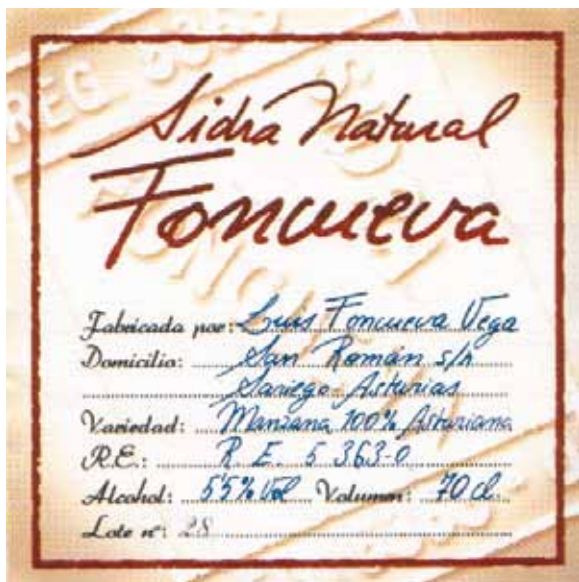 Sidra Natural
Foncueva
Fabricada por: Luis Foncueva Vega
Domicilio: San Román s/n
Sariego-Asturias
Variedad: Manzana 100% Asturiana
R.E.: R.E. 5 363-0
Alcohol: 5'5% Vol Volumen: 70 cl.
Lote nº: 28